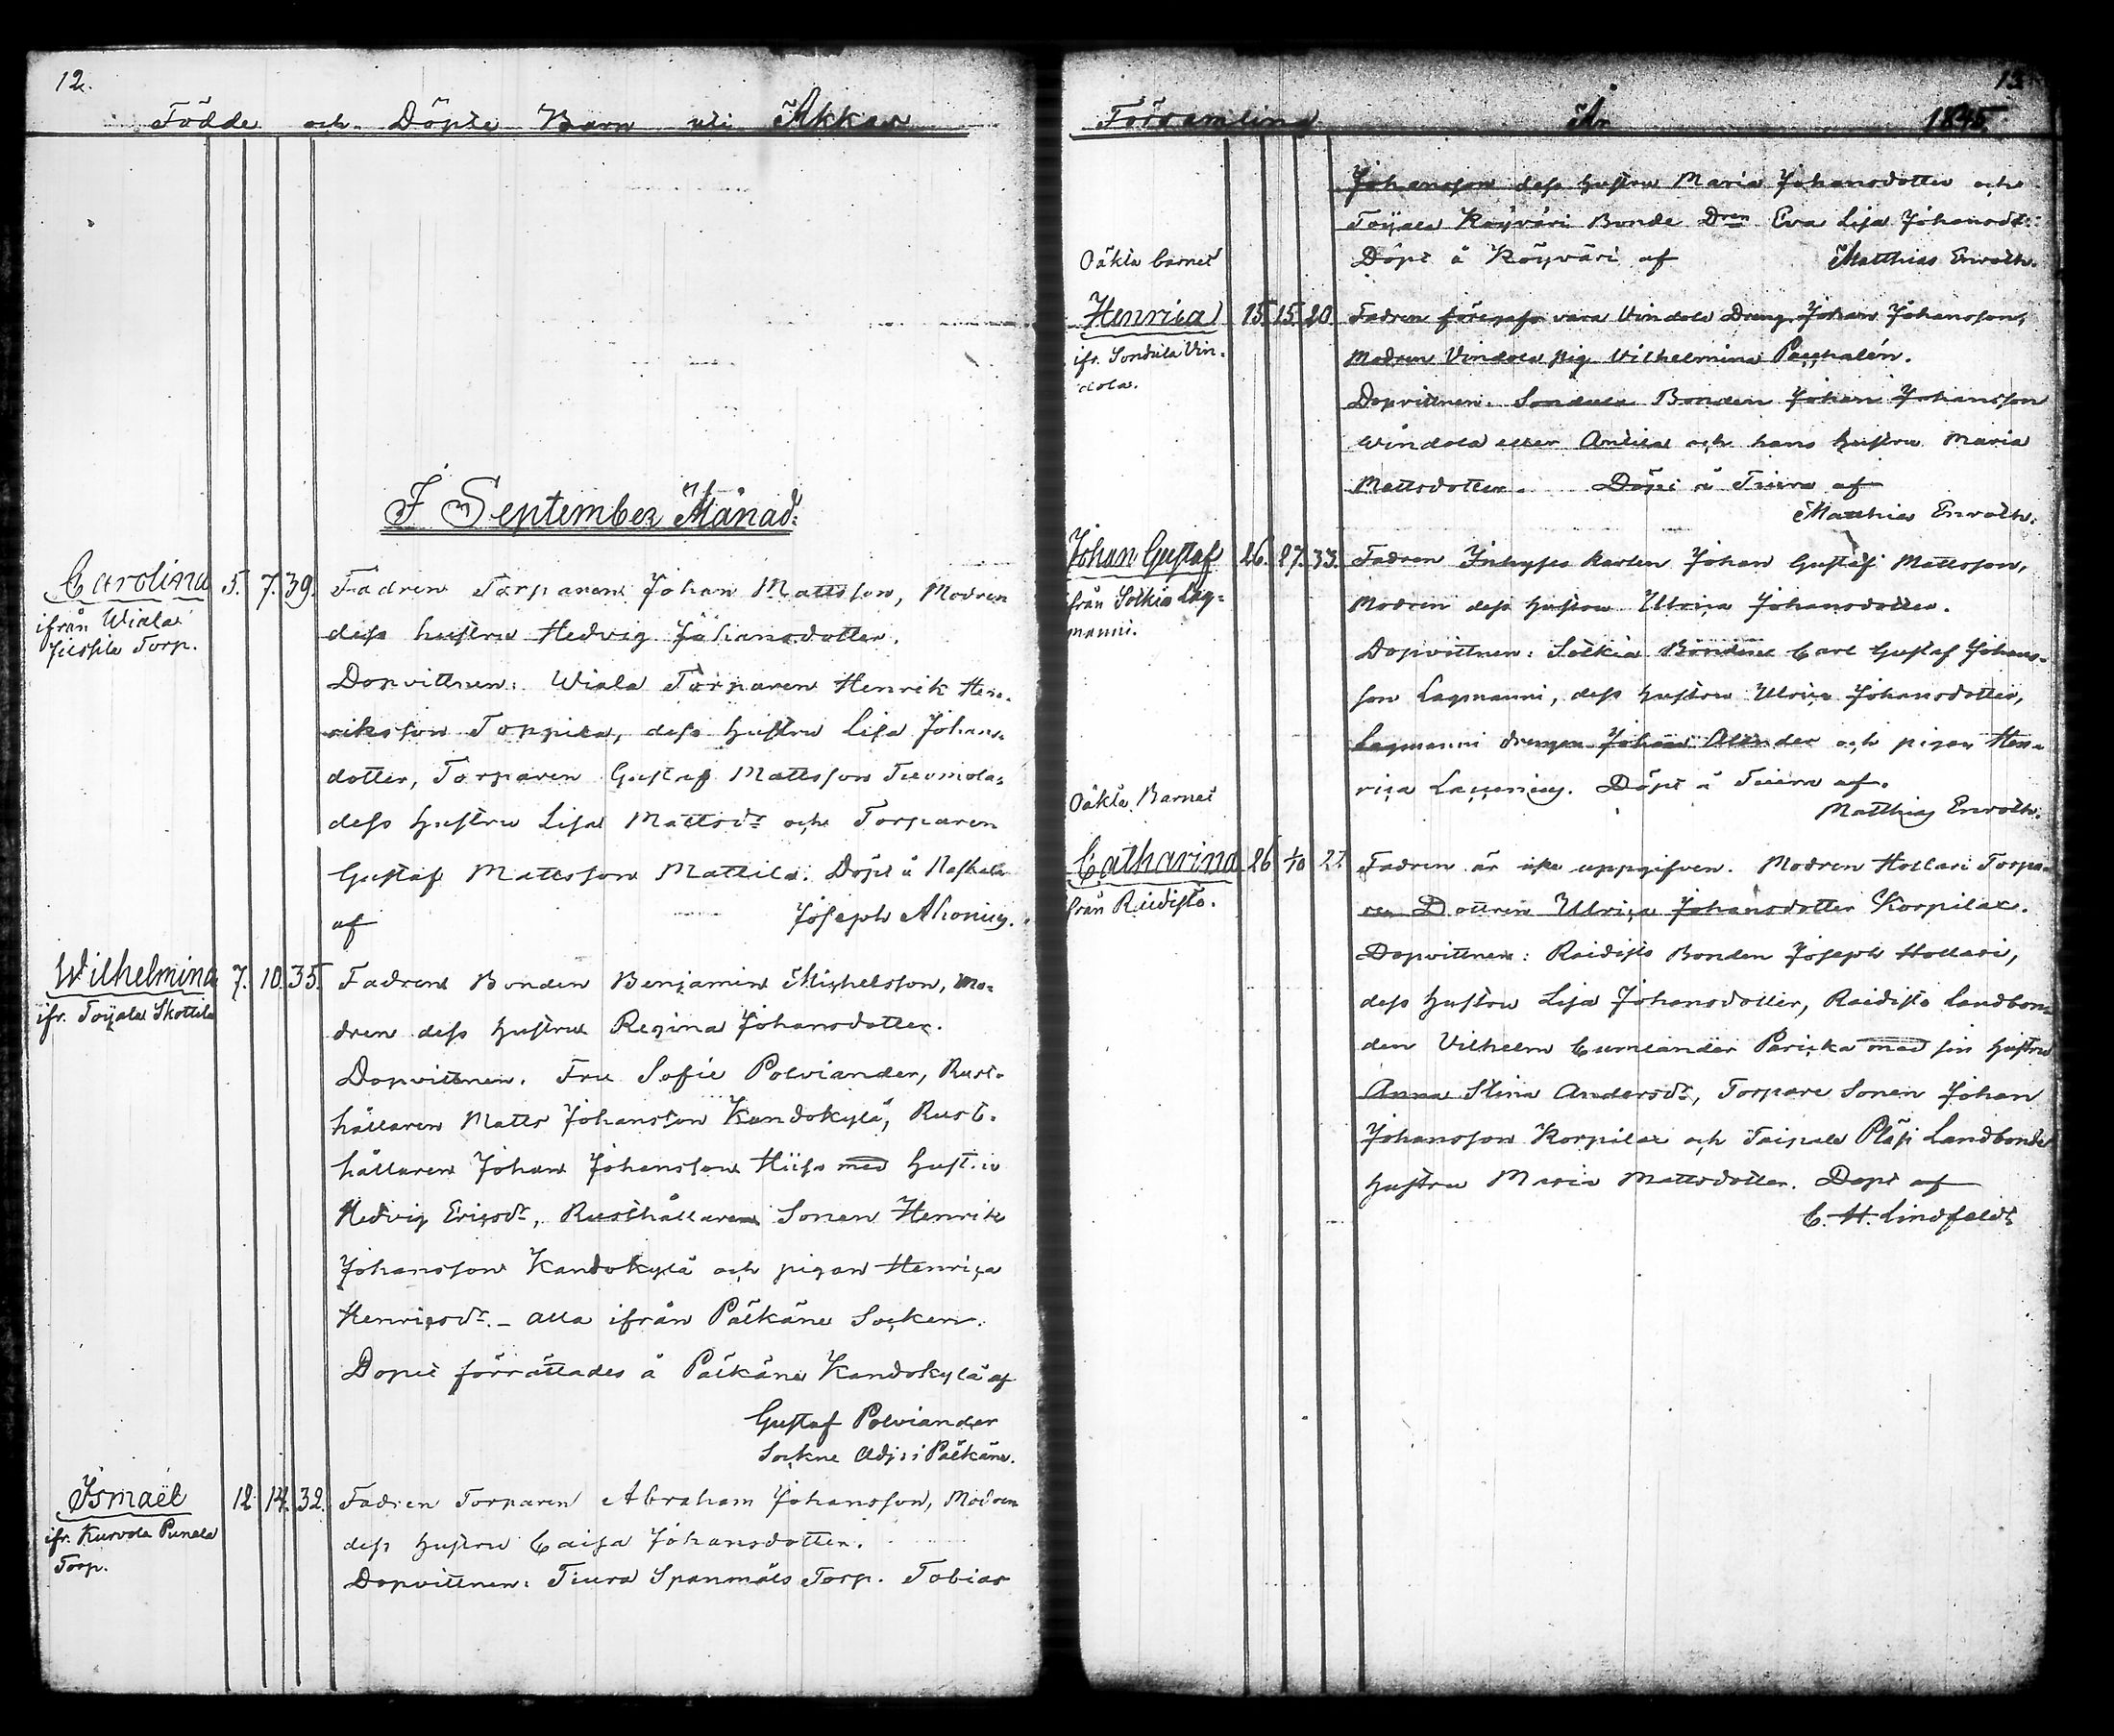 12.
Födde och Döpte Barn uti Akkas
I September Månad:
Carolina 5. 7. 39. Fadren Torparen Johan Mattsson, Modren
ifrån Wiala dess hustru Hedvig Johansdotter.
Torp.
Dopvittnen: Wiala Torparen Henrik Hen-
riksson Toppila, dess hustru Lisa Johans-
dotter, Torparen Gustaf Mattsson Tuomola
dess hustru Lisa Mattsdr och Torparen
Gustaf Mattsson Mattila. Döpt å
af Joseph Ahonius.
Wilhelmina 7. 10. 35. Fadren Bonden Benjamin Michelsson, Mo-
ifr. Toijala Skottila
dren dess hustru Regina Johansdotter.
Dopvittnen. Fru Sofie Polviander, Rust-
hållaren Matts Johansson Kandokylä, Rust-
hållaren Johan Johansson Hiiss med hust.
Hedvig Ericsdr, Rusthållaren Sonen Henrik
Johansson Kandokylä och pigan Henrica
Henricsdr. - alla ifrån Pälkäne Socken.
Dopet förrättades å Pälkäne Kandokylä af
Gustaf Polviander
Sockne Adj: i Pälkäne.
Ismaël 12. 14. 32. Fadren Torparen Abraham Johansson, Modren
ifr. Kurvola Punala
Torp.
dess hustru Caisa Johansdotter.
Dopvittnen: Tiura Spanmåls Torp. Tobias
13.
Församling År 1845.
Johansson dess hustru Maria Johansdotter och
Toijala Köyväri Bonde Dren Eva Lisa Johansdr:
Döpt å Köyväri af Matthias Enroth.
Oäkta barnet
Henrica 15. 15. 20. Fadren föregafs vara Vindola Dreng Johan Johansson,
ifr. Sondula Vin-
dola.
Modren Vindola pig. Vilhelmina Paschalén.
Dopvittnen. Sondula Bonden Johan Johansson
Windola eller Anttila och hans hustru Maria
Mattsdotter. Döpt å Tiura af
Matthias Enroth.
Johan Gustaf 26. 27. 33. Fadren Inhyses karlen Johan Gustaf Mattsson,
från Sotkia Lag-
manni.
Modren dess hustru Ulrica Johansdotter.
Dopvittnen: Sotkia Bonden Carl Gustaf Johans-
son Lagmanni, dess hustru Ulrica Johansdotter,
Lagmanni drengen Johan Alander och pigan Hen-
rica Laurenius. Döpt å Tiura af.
Matthias Enroth.
Oäkta Barnet
Catharina 26 1/10 27. Fadren är icke uppgifven. Modren Hollari Torpa-
från Riidisto.
ren Dottren Ulrica Johansdotter Korpilax.
Dopvittnen: Raidisto Bonden Joseph Hollari,
dess hustru Lisa Johansdotter, Raidisto Landbon-
den Vilhelm Cumlander Paricka med sin hustru
Anna Stina Andersdr, Torpare Sonen Johan
Johansson Korpilax och Taipale Pläsi Landbonde
hustru Maria Mattsdotter. Döpt af
C. H. Lindfeldt